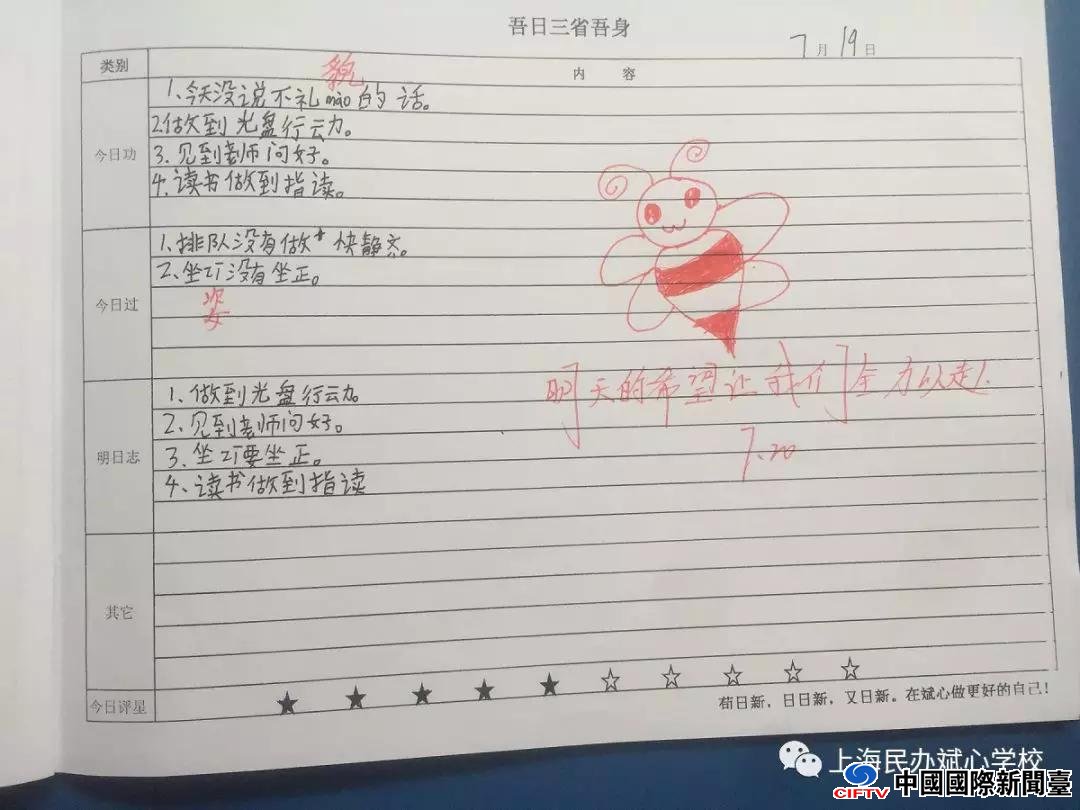 吾日三省吾身
7月19日
类别
内 容
貌
今日功
1、今天没说不礼mào的话。
2.做到光盘行动。
3.见到老师问好。
4.读书做到指读。
今日过
1、排队没有做 快静齐。
2、坐 没有坐正。
姿
明天的希望让我们全力以赴!
7.20
明日志
1、做到光盘行动
2、见到老师问好。
3、坐 要坐正。
4、读书做到指读
其它
今日评星
苟日新,日日新,又日新。在斌心做更好的自己!
上海民办斌心学校
CIFTV
中國國際新聞臺